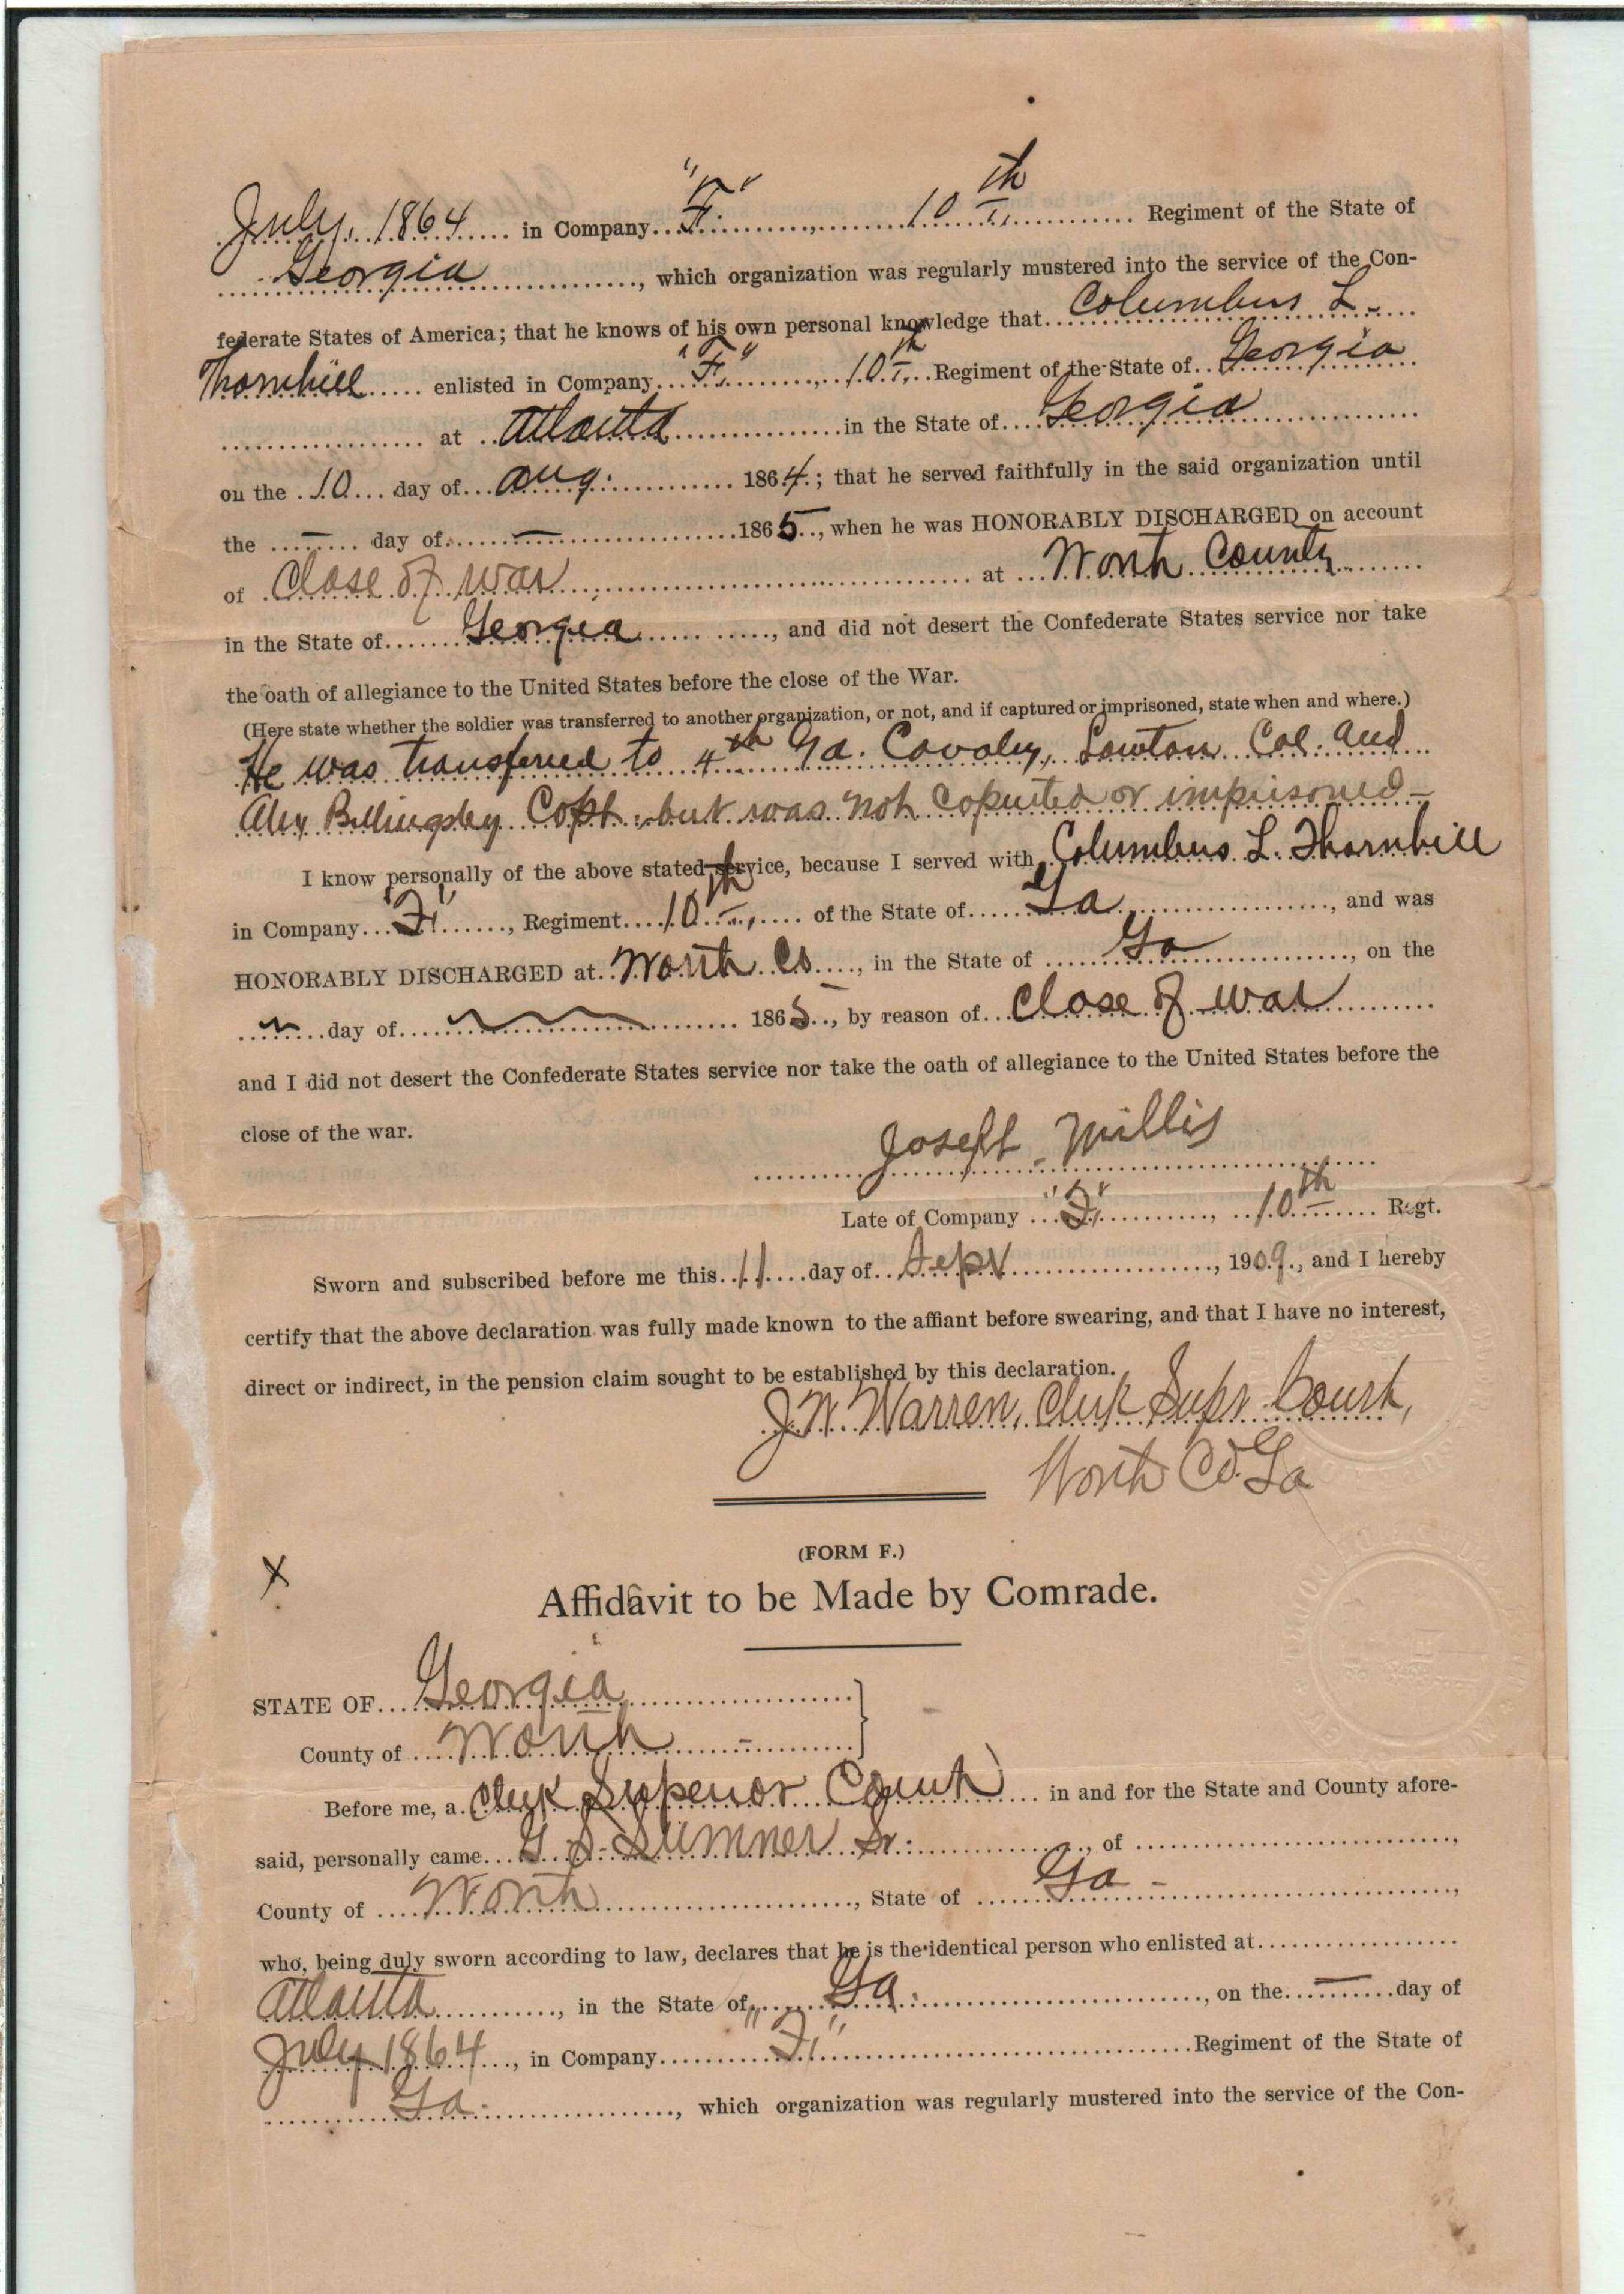 July, 1864 in Company "F" , 10th Regiment of the State of
Georgia , which organization was regularly mustered into the service of the Con-
federate States of America; that he knows of his own personal knowledge that Columbus L.
Thornhill enlisted in Company "F" , 10th Regiment of the State of Georgia
at Atlanta in the State of Georgia
on the 10 day of Aug. 1864; that he served faithfully in the said organization until
the — day of — 1865, when he was HONORABLY DISCHARGED on account
of Close of war at Worth County
in the State of Georgia , and did not desert the Confederate States service nor take
the oath of allegiance to the United States before the close of the War.
(Here state whether the soldier was transferred to another organization, or not, and if captured or imprisoned, state when and where.)
He was transferred to 4th Ga. Cavalry, Lawton Col. and
Alex Billingsley Capt. but was not captured or imprisoned —
I know personally of the above stated service, because I served with Columbus L. Thornhill
in Company "F" , Regiment 10th, of the State of Ga , and was
HONORABLY DISCHARGED at Worth Co , in the State of Ga , on the
day of 1865, by reason of Close of war
and I did not desert the Confederate States service nor take the oath of allegiance to the United States before the
close of the war.
Joseph Millis
Late of Company "F" , 10th Regt.
Sworn and subscribed before me this 11 day of Sept , 1909, and I hereby
certify that the above declaration was fully made known to the affiant before swearing, and that I have no interest,
direct or indirect, in the pension claim sought to be established by this declaration.
J. W. Warren, Clerk Supr. Court,
Worth Co. Ga
(FORM F.)
X
Affidavit to be Made by Comrade.
STATE OF Georgia
County of Worth —
Before me, a Clerk Superior Court in and for the State and County afore-
said, personally came G. S. Sumner Sr. , of ,
County of Worth , State of Ga — ,
who, being duly sworn according to law, declares that he is the identical person who enlisted at
Atlanta , in the State of Ga. , on the — day of
July 1864 , in Company "F" Regiment of the State of
Ga. , which organization was regularly mustered into the service of the Con-